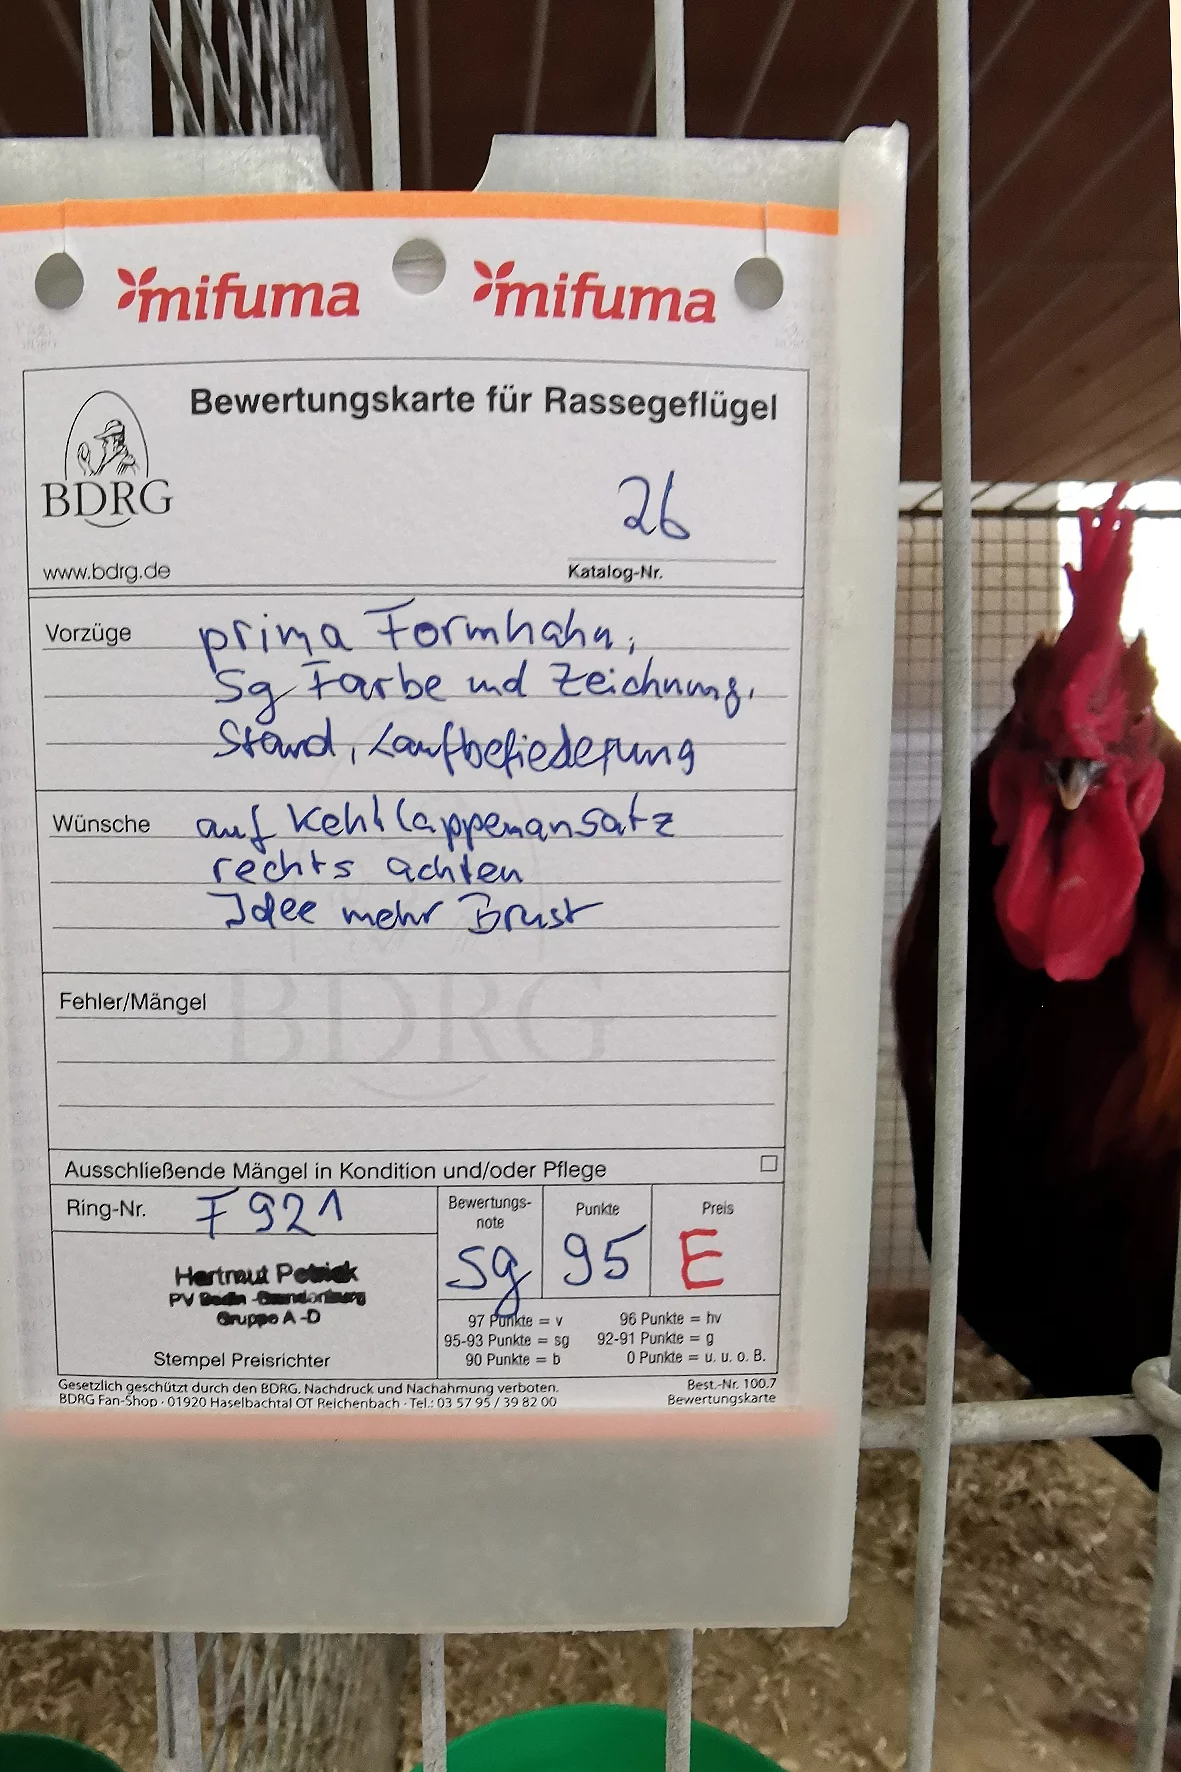 mifuma mifuma
Bewertungskarte für Rassegeflügel
BDRG
26
www.bdrg.de
Katalog-Nr.
Vorzüge prima Formhahn,
Sg Farbe und Zeichnung,
Stand, Laufbefiederung
Wünsche auf Kehllappenansatz
rechts achten
Idee mehr Brust
BDRG
Fehler/Mängel
Ausschließende Mängel in Kondition und/oder Pflege
Ring-Nr. F 921
Bewertungs-
note
Punkte
Preis
sg 95 E
Hartmut Petrick
PV Berlin-Brandenburg
Gruppe A-D
Stempel Preisrichter
97 Punkte = v 96 Punkte = hv
95-93 Punkte = sg 92-91 Punkte = g
90 Punkte = b 0 Punkte = u. u. o. B.
Gesetzlich geschützt durch den BDRG. Nachdruck und Nachahmung verboten. Best.-Nr. 100.7
BDRG Fan-Shop · 01920 Haselbachtal OT Reichenbach · Tel.: 03 57 95 / 39 82 00 Bewertungskarte